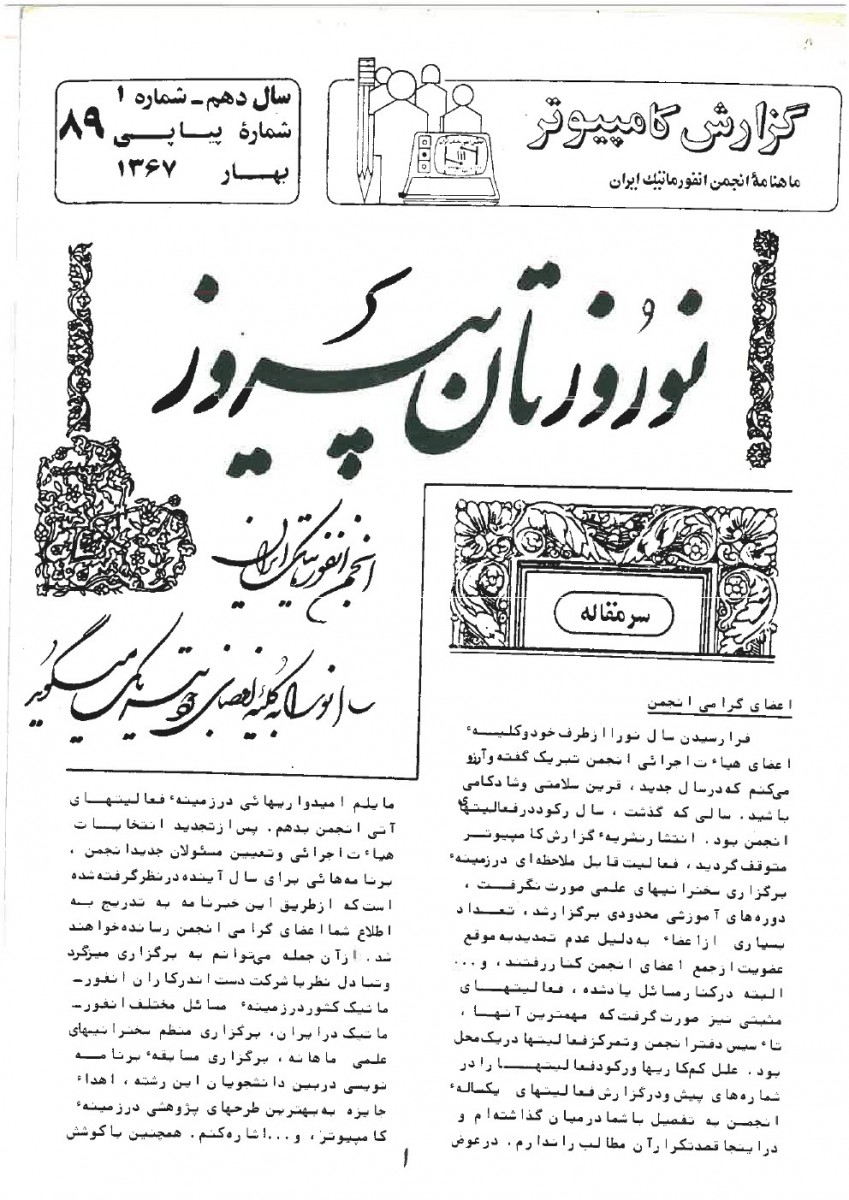 گزارش کامپیوتر
ماهنامهٔ انجمن انفورماتیک ایران
سال دهم - شماره ۱
شمارهٔ پیاپی ۸۹
بهار ۱۳۶۷
نوروزتان پیروز
انجمن انفورماتیک ایران
سال نو را به کلیهٔ اعضای خود تبریک میگوید
سرمقاله
اعضای گرامی انجمن
فرارسیدن سال نورا ازطرف خودوکلیهء
اعضای هیاءت اجرائی انجمن تبریک گفته وآرزو
می‌کنم که درسال جدید، قرین سلامتی وشادکامی
باشید. سالی که گذشت، سال رکوددرفعالیتهای
انجمن بود. انتشارنشریهء گزارش کامپیوتر
متوقف گردید، فعالیت قابل ملاحظه‌ای درزمینهء
برگزاری سخنرانیهای علمی صورت نگرفت،
دوره‌های آموزشی محدودی برگزارشد، تعداد
بسیاری ازاعضاء به‌دلیل عدم تمدیدبه‌موقع
عضویت ازجمع اعضای انجمن کناررفتند، و...
البته درکنارمسائل یادشده، فعالیتهای
مثبتی نیز صورت گرفت‌که مهمترین آنها،
تاءسیس دفترانجمن وتمرکزفعالیتها دریک‌محل
بود. علل کم‌کاریها ورکودفعالیتهارا در
شماره‌های پیش ودرگزارش فعالیتهای یکسالهء
انجمن به تفصیل باشمادرمیان گذاشته‌ام و
دراینجا قصدتکرارآن مطالب راندارم. درعوض
مایلم امیدواریهائی درزمینهء فعالیتهای
آتی انجمن بدهم. پس‌ازتجدید انتخابات
هیاءت اجرائی وتعیین مسئولان جدیدانجمن،
برنامه‌هائی برای سال آینده درنظرگرفته‌شده
است‌که ازطریق این خبرنامه به تدریج به
اطلاع شمااعضای گرامی انجمن رسانده‌خواهند
شد. ازآن جمله می‌توانم به برگزاری میزگرد
وتبادل نظربا شرکت دست‌اندرکاران انفور-
ماتیک کشوردرزمینهء مسائل مختلف انفور-
ماتیک درایران، برگزاری منظم سخنرانیهای
علمی ماهانه، برگزاری مسابقهء برنامه
نویسی دربین دانشجویان این رشته، اهداء
جایزه به‌بهترین طرحهای پژوهشی درزمینهء
کامپیوتر، و...اشاره‌کنم. همچنین باکوشش
۱